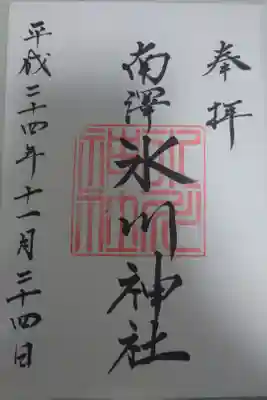 奉拝
南澤氷川神社
平成二十四年十一月二十四日